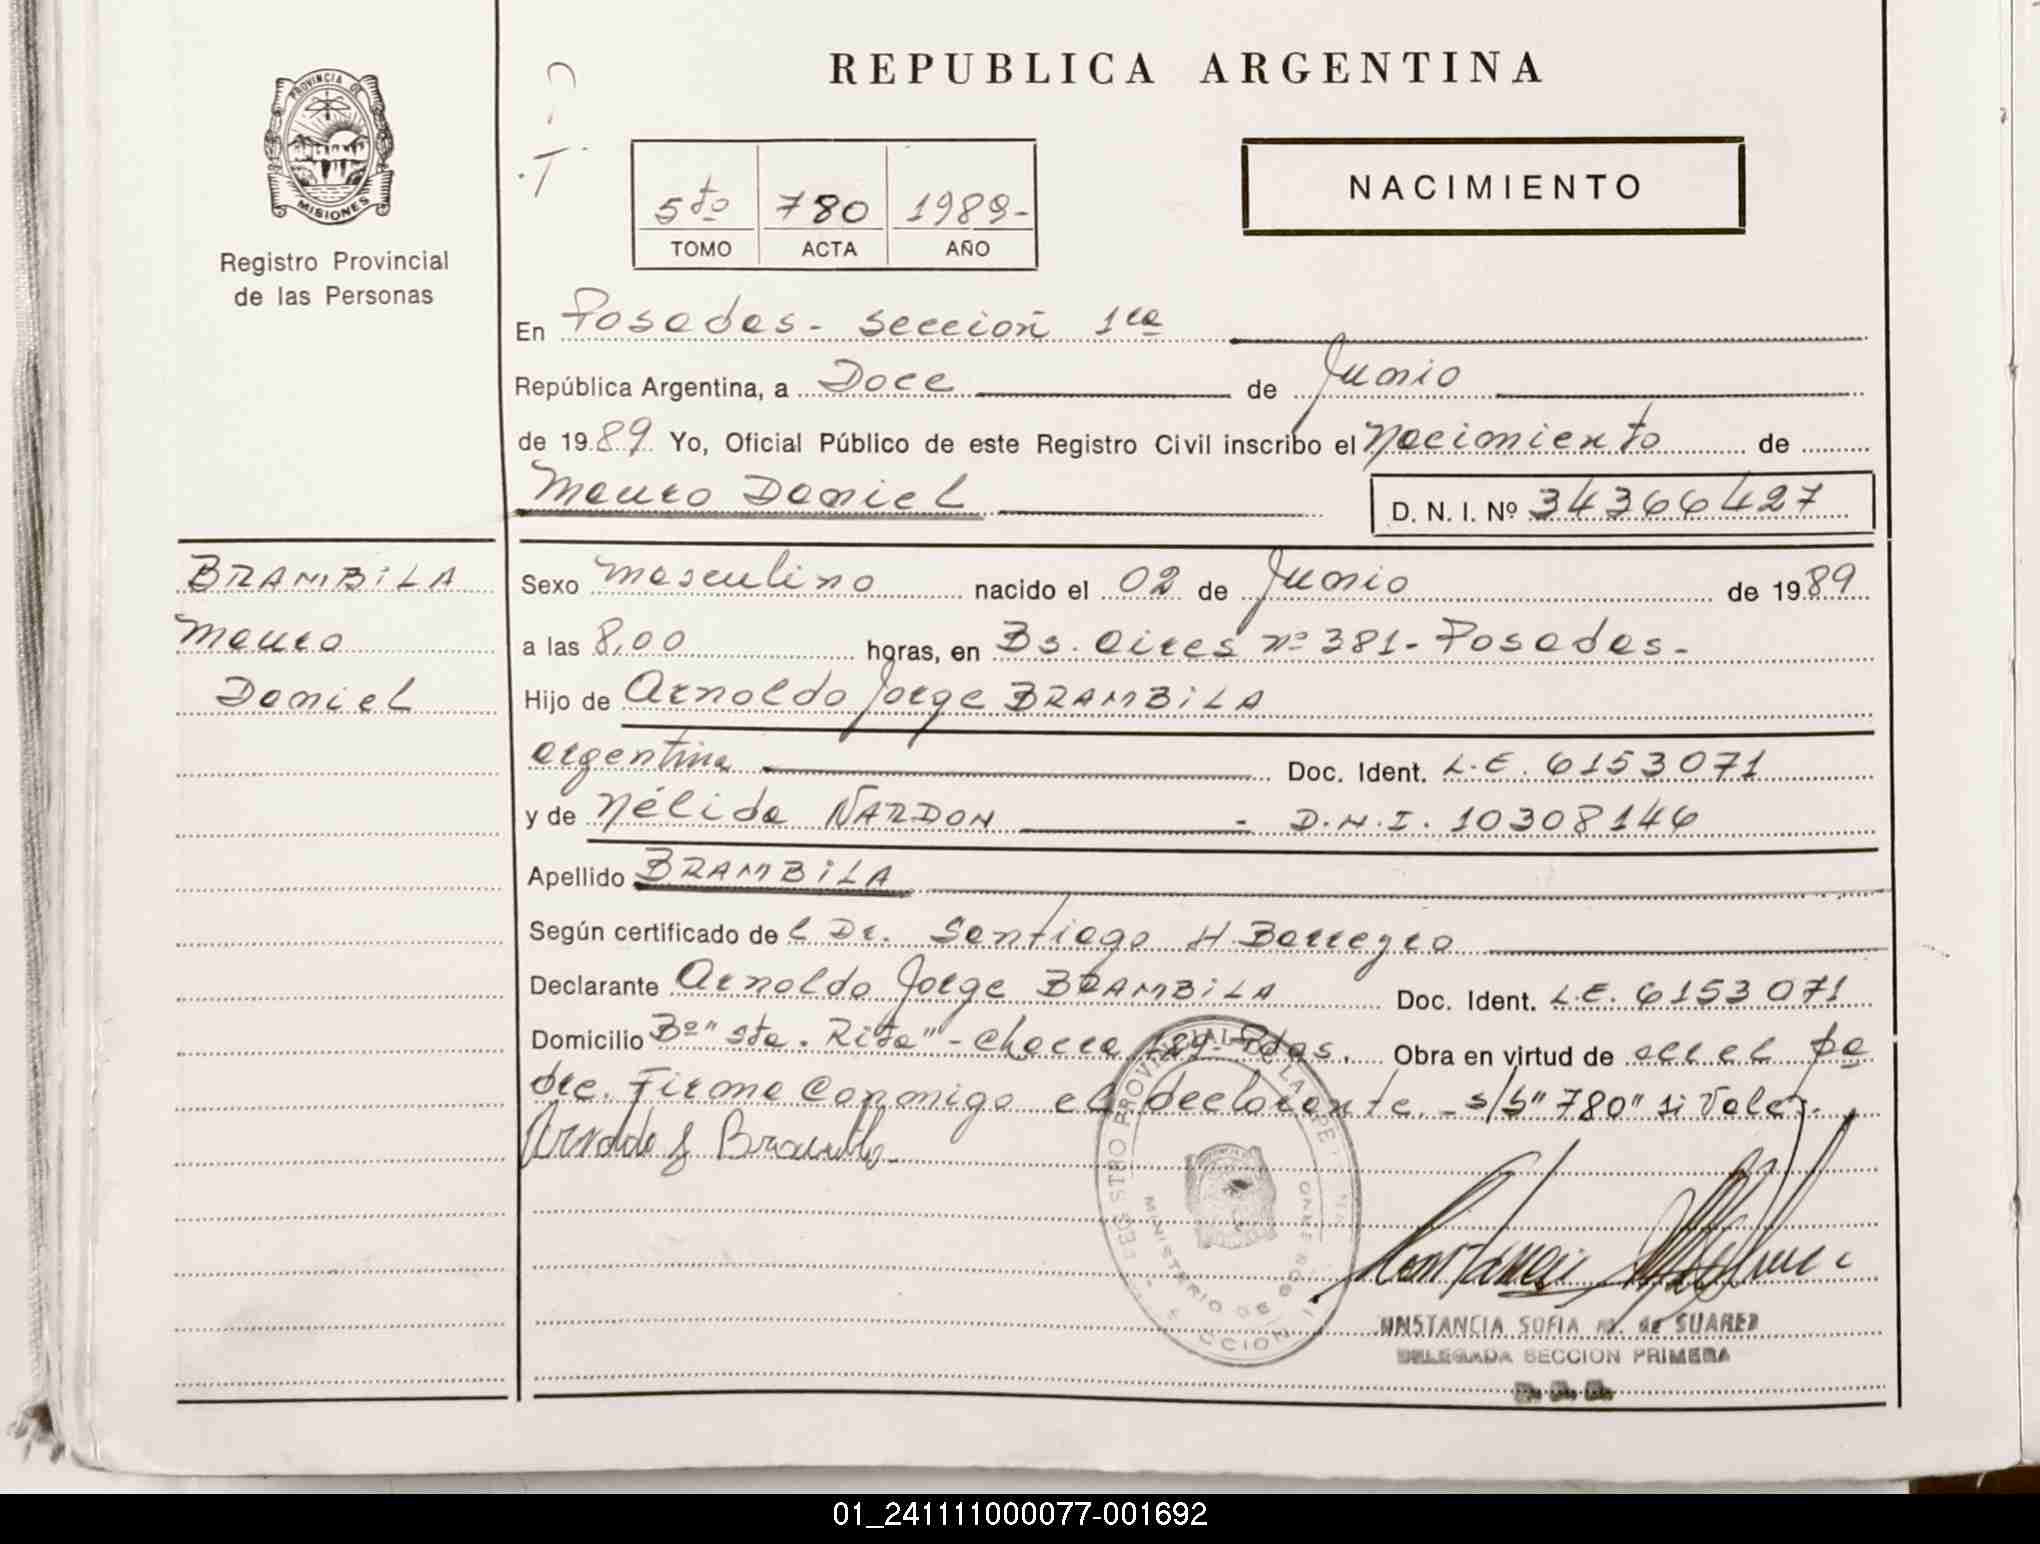 REPUBLICA ARGENTINA
PROVINCIA DE
MISIONES
Registro Provincial
de las Personas
NACIMIENTO
5to 780 1989-
TOMO ACTA AÑO
En Posadas - sección 1ra
República Argentina, a Doce de Junio
de 1989 Yo, Oficial Público de este Registro Civil inscribo el Nacimiento de
Mauro Daniel D. N. I. Nº 34366427
BRAMBiLA
Mauro
Daniel
Sexo masculino nacido el 02 de Junio de 1989
a las 8,00 horas, en Bs. Aires nº 381 - Posadas -
Hijo de Arnoldo Jorge BRAMBiLA
argentina Doc. Ident. L.E. 6153071
y de Nélida NARDON - D.N.I. 10308146
Apellido BRAMBiLA
Según certificado de l Dr. Santiago H Borregro
Declarante Arnoldo Jorge BRAMBiLA Doc. Ident. L.E. 6153071
Domicilio Bº "Sta. Rita" - Chacra 189 - Pdas. Obra en virtud de ser el pa
dre. Firma Conmigo el declarante. - s/b "780" si Vale.
Arnoldo J Brambila
MINISTERIO DE
CONSTANCIA SOFIA M. de SUAREZ
DELEGADA SECCION PRIMERA
01_241111000077-001692